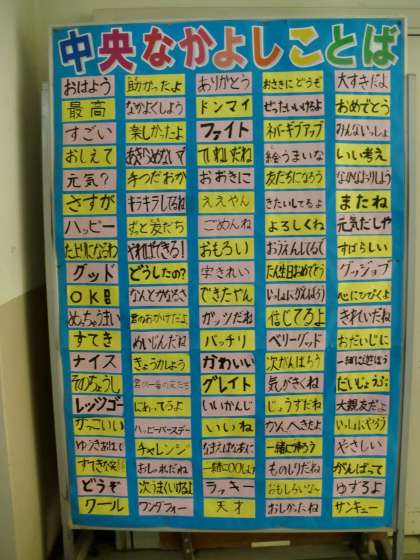 中央なかよしことば
おはよう 助かったよ ありがとう おさきにどうぞ 大すきだよ
最高 なかよくしよう ドンマイ ぜったいいけるよ おめでとう
すごい 楽しかったよ ファイト ネバーギブアップ みんないっしょ
おしえて あきらめないで ていねいだね 絵うまいな いい考え
元気? 手つだおか おおきに 友だちになろう なかなおりしよう
さすが キラキラしてるね ええやん きたいしてるよ またね
ハッピー ずっと友だち ごめんね よろしくね 元気だしや
やればできる! おもろい おうえんしてるで すばらしい
グッド どうしたの? 字きれい たん生日おめでとう グッジョブ
OK なんとかなるさ できたやん いっしょにがんばろう 心にひびくよ
めっちゃうまい 君のおかげだよ ガッツだね 信じてるよ きれいだね
すてき めいじんだね バッチリ ベリーグッド おだいじに
ナイス きょうかしよう かわいい 次がんばろう 一緒に遊ぼう
君が一番の友だち グレイト 気がきくね だいじょうぶ
レッツゴー にあってるよ いいかんじ じょうずだね 大親友だよ
かっこいい ハッピーバースデー いいね いっしょにやろう
チャレンジ 一緒に帰ろう やさしい
すてきな笑顔 おしゃれだね ものしりだね がんばって
どうぞ 次うまくいけるよ ラッキー おもしろいな〜 ゆずるよ
クール ワンダフォー 天才 おしかったね サンキュー